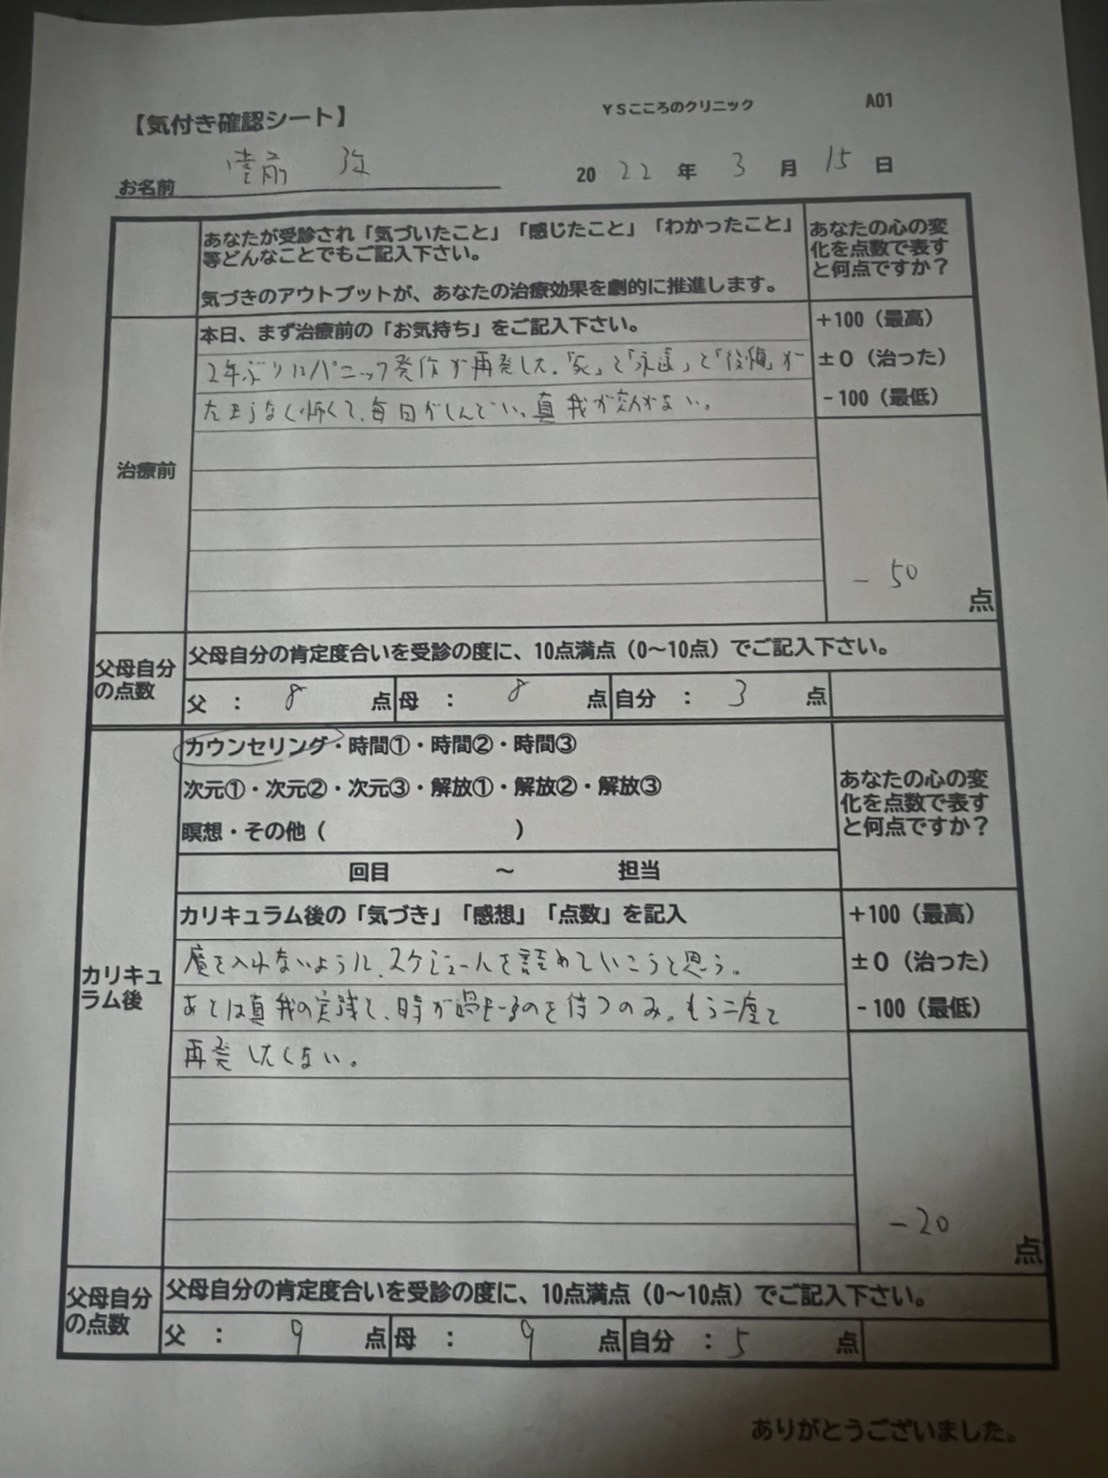 【気付き確認シート】
YSこころのクリニック
A01
お名前
2022年3月15日
あなたが受診され「気づいたこと」「感じたこと」「わかったこと」
等どんなことでもご記入下さい。
気づきのアウトプットが、あなたの治療効果を劇的に推進します。
あなたの心の変
化を点数で表す
と何点ですか？
治療前
本日、まず治療前の「お気持ち」をご記入下さい。
2年ぶりにパニック発作が再発した。「死」と「永遠」と「後悔」が
たまらなく怖くて、毎日がしんどい。真我が効かない。
+100（最高）
±0（治った）
-100（最低）
-50
点
父母自分
の点数
父母自分の肯定度合いを受診の度に、10点満点（0〜10点）でご記入下さい。
父：8点 母：8点 自分：3点
カリキュ
ラム後
カウンセリング・時間①・時間②・時間③
次元①・次元②・次元③・解放①・解放②・解放③
瞑想・その他（ ）
回目 〜 担当
あなたの心の変
化を点数で表す
と何点ですか？
カリキュラム後の「気づき」「感想」「点数」を記入
魔を入れないように、スケジュールを詰めていこうと思う。
あとは真我の実践と、時が過ぎるのを待つのみ。もう二度と
再発したくない。
+100（最高）
±0（治った）
-100（最低）
-20
点
父母自分
の点数
父母自分の肯定度合いを受診の度に、10点満点（0〜10点）でご記入下さい。
父：9点 母：9点 自分：5点
ありがとうございました。